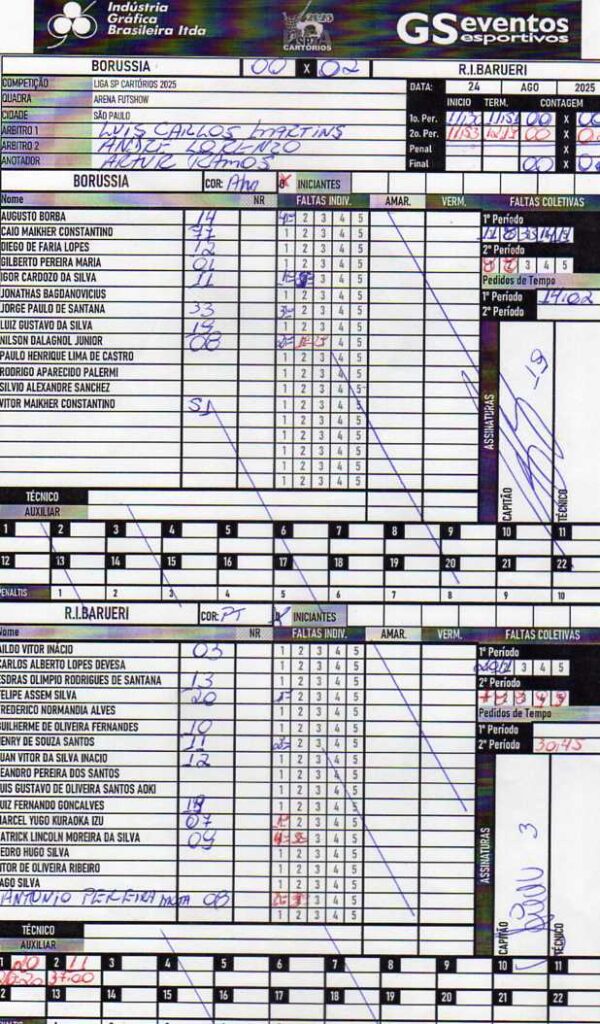 Indústria
Gráfica
Brasileira ltda
CARTÓRIOS
GSeventos
esportivos
BORUSSIA 00 X 02 R.I.BARUERI
COMPETIÇÃO LIGA SP CARTÓRIOS 2025 DATA: 24 AGO 2025
QUADRA ARENA FUTSHOW INICIO TERM. CONTAGEM
CIDADE SÃO PAULO 1o. Per. X
ARBITRO 1 LUIS CARLOS MARTINS 2o. Per. 00 X
ARBITRO 2 ANDRE LORENZO Penal X
ANOTADOR ARTUR RAMOS Final 00 X
BORUSSIA COR: INICIANTES
Nome NR FALTAS INDIV. AMAR. VERM. FALTAS COLETIVAS
AUGUSTO BORBA 14 2 3 4 5 1º Período
CAIO MAIKHER CONSTANTINO 77 1 2 3 4 5
DIEGO DE FARIA LOPES 12 1 2 3 4 5 2º Período
GILBERTO PEREIRA MARIA 01 1 2 3 4 5 3 4 5
IGOR CARDOZO DA SILVA 11 3 4 5 Pedidos de Tempo
JONATHAS BAGDANOVICIUS 1 2 3 4 5 1º Período 19:02
JORGE PAULO DE SANTANA 33 2 3 4 5 2º Período
LUIZ GUSTAVO DA SILVA 19 1 2 3 4 5
NILSON DALAGNOL JUNIOR 08 4 5
PAULO HENRIQUE LIMA DE CASTRO 1 2 3 4 5
RODRIGO APARECIDO PALERMI 1 2 3 4 5
SILVIO ALEXANDRE SANCHEZ 1 2 3 4 5
VITOR MAIKHER CONSTANTINO 51 1 2 3 4 5
1 2 3 4 5
1 2 3 4 5
1 2 3 4 5
1 2 3 4 5
1 2 3 4 5
ASSINATURAS
CAPITÃO
19
TÉCNICO
TÉCNICO
AUXILIAR
1 2 3 4 5 6 7 8 9 10 11
12 13 14 15 16 17 18 19 20 21 22
PENALTIS 1 2 3 4 5 6 7 8 9 10
R.I.BARUERI COR: PT INICIANTES
Nome NR FALTAS INDIV. AMAR. VERM. FALTAS COLETIVAS
AILDO VITOR INÁCIO 03 1 2 3 4 5 1º Período
CARLOS ALBERTO LOPES DEVESA 1 2 3 4 5 3 4 5
ESDRAS OLIMPIO RODRIGUES DE SANTANA 13 1 2 3 4 5 2º Período
FELIPE ASSEM SILVA 20 2 3 4 5
FREDERICO NORMANDIA ALVES 1 2 3 4 5 Pedidos de Tempo
GUILHERME DE OLIVEIRA FERNANDES 10 1 2 3 4 5 1º Período
HENRY DE SOUZA SANTOS 11 2 3 4 5 2º Período 30:45
JUAN VITOR DA SILVA INACIO 12 1 2 3 4 5
LEANDRO PEREIRA DOS SANTOS 1 2 3 4 5
LUIS GUSTAVO DE OLIVEIRA SANTOS AOKI 1 2 3 4 5
LUIZ FERNANDO GONCALVES 1 2 3 4 5
MARCEL YUGO KURAOKA IZU 07 2 3 4 5
PATRICK LINCOLN MOREIRA DA SILVA 09 3 4 5
PEDRO HUGO SILVA 1 2 3 4 5
VITOR DE OLIVEIRA RIBEIRO 1 2 3 4 5
IAGO SILVA 1 2 3 4 5
ANTONIO PEREIRA MOTA 08 3 4 5
1 2 3 4 5
ASSINATURAS
CAPITÃO
3
TÉCNICO
TÉCNICO
AUXILIAR
1 20 2 11 3 4 5 6 7 8 9 10 11
26:20 37:00
12 13 14 15 16 17 18 19 20 21 22
1 2 3 4 5 6 7 8 9 10